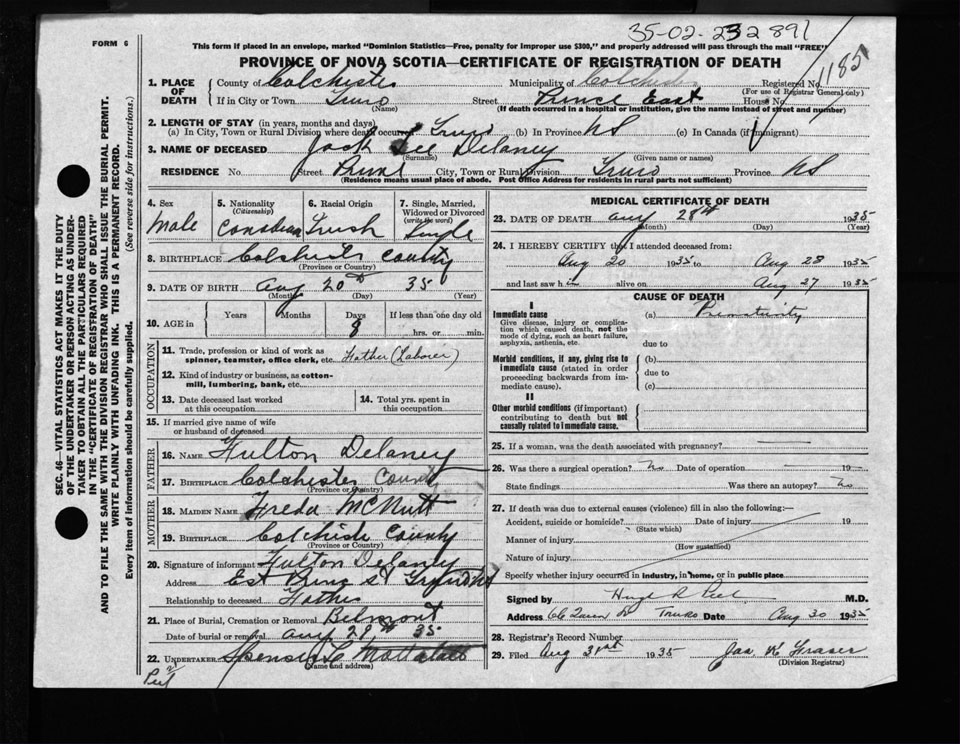 35-02-232891
1185
FORM 6
This form if placed in an envelope, marked "Dominion Statistics—Free, penalty for improper use $300," and properly addressed will pass through the mail "FREE"
PROVINCE OF NOVA SCOTIA—CERTIFICATE OF REGISTRATION OF DEATH
1. PLACE OF DEATH
County of Colchester Municipality of Colchester Registered No.
(For use of Registrar General only)
If in City or Town Truro Street Prince East House No.
(Name) (If death occurred in a hospital or institution, give the name instead of street and number)
2. LENGTH OF STAY (in years, months and days)
(a) In City, Town or Rural Division where death occurred Truro (b) In Province NS (c) In Canada (if immigrant)
3. NAME OF DECEASED Jack Lee Delaney
(Surname) (Given name or names)
RESIDENCE No. Street Prince City, Town or Rural Division Truro Province NS
(Residence means usual place of abode. Post Office Address for residents in rural parts not sufficient)
4. Sex 5. Nationality (Citizenship) 6. Racial Origin 7. Single, Married, Widowed or Divorced (write the word)
Male Canadian Irish Single
8. BIRTHPLACE Colchester County
(Province or Country)
9. DATE OF BIRTH Aug 20th 35
(Month) (Day) (Year)
10. AGE in Years Months Days If less than one day old
8 hrs. or min.
OCCUPATION
11. Trade, profession or kind of work as spinner, teamster, office clerk, etc. Father (Laborer)
12. Kind of industry or business, as cotton-mill, lumbering, bank, etc.
13. Date deceased last worked at this occupation
14. Total yrs. spent in this occupation
15. If married give name of wife or husband of deceased
FATHER
16. NAME Fulton Delaney
17. BIRTHPLACE Colchester County
(Province or Country)
MOTHER
18. MAIDEN NAME Freda McNutt
19. BIRTHPLACE Colchester County
(Province or Country)
20. Signature of informant Fulton Delaney
Address Est Prince st Truro NS
Relationship to deceased Father
21. Place of Burial, Cremation or Removal Belmont
Date of burial or removal Aug 28th 35
22. UNDERTAKER
(Name and address)
MEDICAL CERTIFICATE OF DEATH
23. DATE OF DEATH Aug 28th 1935
(Month) (Day) (Year)
24. I HEREBY CERTIFY that I attended deceased from:
Aug 20 1935 to Aug 28 1935
and last saw him alive on Aug 27 1935
CAUSE OF DEATH
I
Immediate cause
Give disease, injury or complication which caused death, not the mode of dying, such as heart failure, asphyxia, asthenia, etc.
(a) Prematurity
due to
Morbid conditions, if any, giving rise to immediate cause (stated in order proceeding backwards from immediate cause).
(b)
due to
(c)
II
Other morbid conditions (if important) contributing to death but not causally related to immediate cause.
25. If a woman, was the death associated with pregnancy?
26. Was there a surgical operation? No Date of operation 19
State findings Was there an autopsy? No
27. If death was due to external causes (violence) fill in also the following:—
Accident, suicide or homicide? Date of injury 19
(State which)
Manner of injury
(How sustained)
Nature of injury
Specify whether injury occurred in industry, in home, or in public place
Signed by Hugh R Peel M.D.
Address Truro Date Aug 30 1935
28. Registrar's Record Number
29. Filed Aug 31st 1935 Jas K Fraser
(Division Registrar)
SEC. 46—VITAL STATISTICS ACT MAKES IT THE DUTY OF THE UNDERTAKER OR PERSON ACTING AS UNDERTAKER TO OBTAIN ALL THE PARTICULARS REQUIRED IN THE "CERTIFICATE OF REGISTRATION OF DEATH" AND TO FILE THE SAME WITH THE DIVISION REGISTRAR WHO SHALL ISSUE THE BURIAL PERMIT.
WRITE PLAINLY WITH UNFADING INK. THIS IS A PERMANENT RECORD.
Every item of information should be carefully supplied. (See reverse side for instructions.)